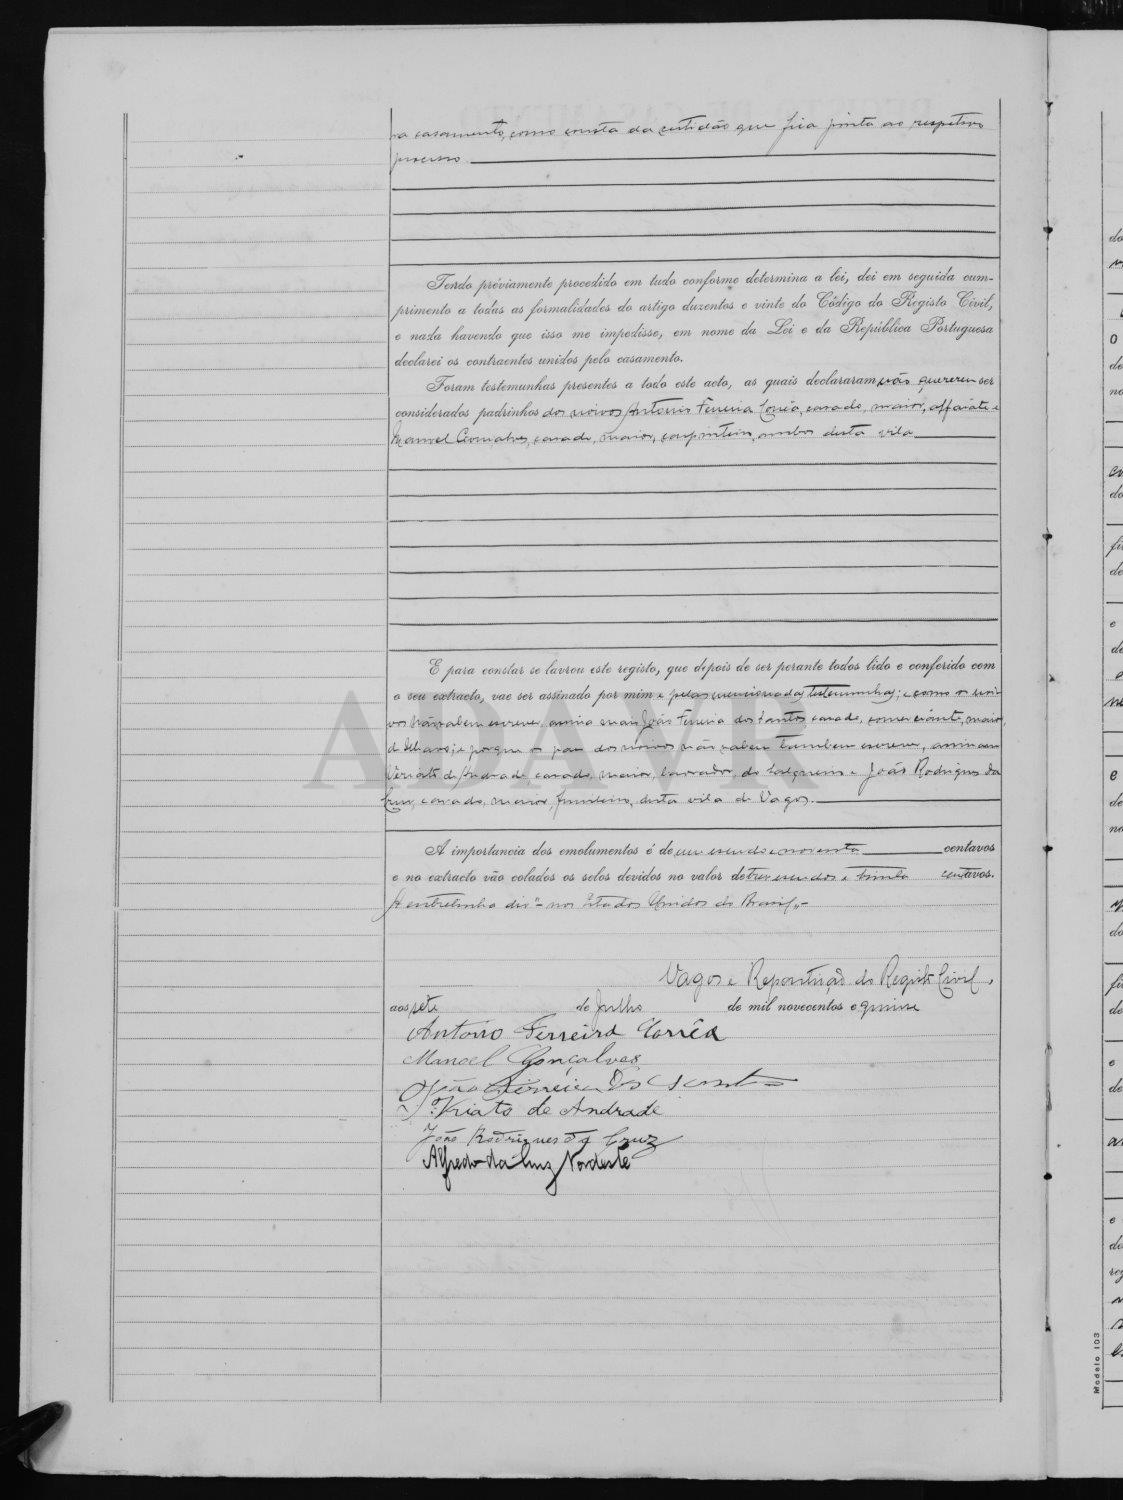 ra casamento, como consta da certidão que fica junta ao respetivo
processo
Tendo préviamente procedido em tudo conforme determina a lei, dei em seguida cum-
primento a todas as formalidades do artigo duzentos e vinte do Código do Registo Civil,
e nada havendo que isso me impedisse, em nome da Lei e da República Portuguesa
declarei os contraentes unidos pelo casamento.
Foram testemunhas presentes a todo este acto, as quais declararam não quererem ser
considerados padrinhos dos noivos Antonio Ferreira Corrêa, casado, maior, alfaiate e
Manoel Gonçalves, casado, maior, carpinteiro, ambos desta vila
E para constar se lavrou este registo, que depois de ser perante todos lido e conferido com
o seu extracto, vae ser assinado por mim e pelas mencionadas testemunhas; e como os noi-
vos não sabem escrever, assina mais João Ferreira dos Santos, casado, comerciante, maior,
d' e porque os pais dos noivos não sabem tambem escrever, assinam
Viriato de Andrade, casado, maior, lavrador, do Salgueiro e João Rodrigues da
Cruz, casado, maior, funileiro, desta vila de Vagos.
A importancia dos emolumentos é de um escudo e noventa centavos
e no extracto vão colados os selos devidos no valor de tres escudos e trinta centavos.
A entrelinha diz "- nos Estados Unidos do Brasil,-
Vagos e Repartição do Registo Civil,
aos sete de Julho de mil novecentos e quinze
Antonio Ferreira Corrêa
Manoel Gonçalves
João Ferreira dos Santos
Viriato de Andrade
João Rodrigues da Cruz
Alfredo da Cruz Nordeste
ADAVR
Modelo 103